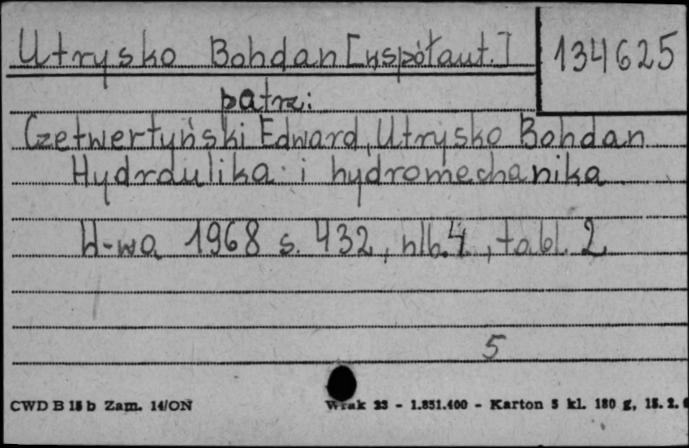 Utrysko Bohdan [współaut.] 134625
patrz:
Czetwertyński Edward, Utrysko Bohdan
Hydraulika i hydromechanika
W-wa 1968 s. 432, nlb. 4, tabl. 2
5
CWD B 15 b Zam. 14/ON
23 - 1.851.400 - Karton 5 kl. 180 g,